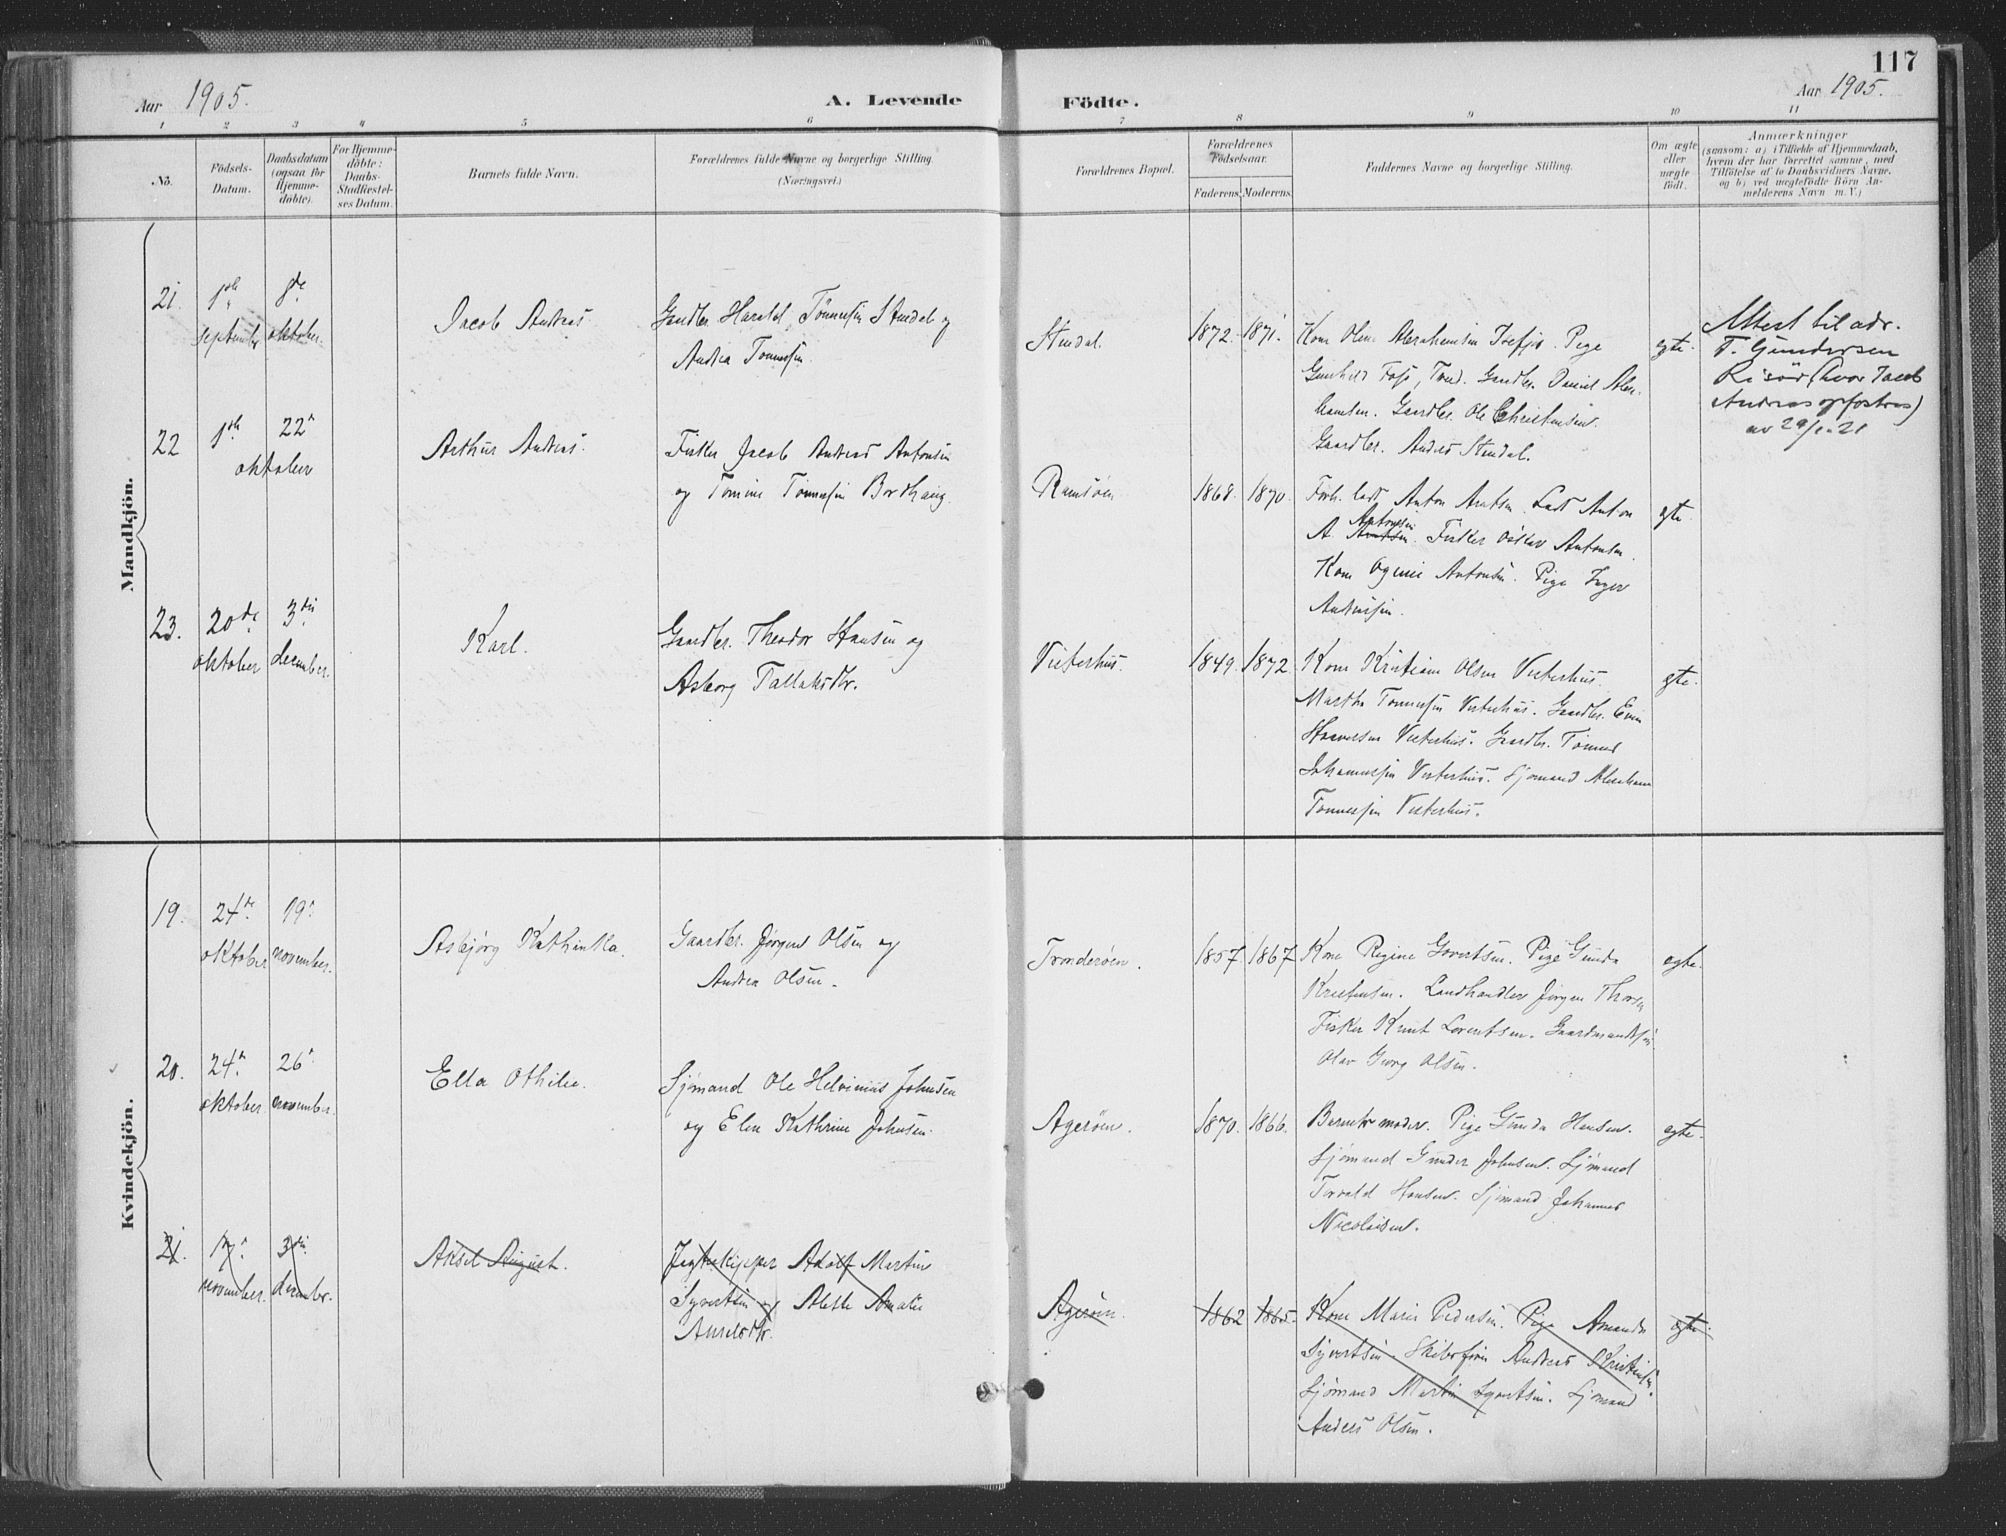 117
Aar 1905.
A. Levende Födte.
Aar 1905.
1 2 3 4 5 6 7 8 9 10 11
No.
Födsels-
Datum.
Daabsdatum
(ogsaa for
Hjemme-
döbte).
For Hjemme-
döbte:
Daabs-
Stadfæstel-
ses Datum.
Barnets fulde Navn.
Forældrenes fulde Navne og borgerlige Stilling.
(Næringsvei.)
Forældrenes Bopæl.
Forældrenes
Födselsaar.
Faderens. Moderens.
Faddernes Navne og borgerlige Stilling.
Om ægte
eller
uægte
födt.
Anmærkninger
(saasom: a) i Tilfælde af Hjemmedaab,
hvem der har forrettet samme, med
Tilföielse af to Daabsvidners Navne,
og b) ved uægtefödte Börn An-
melderens Navn m. V.)
Mandkjön.
21. 1ste
september
8de
oktober.
Jacob Andreas
Gaardbr. Harald Tønnesen Stendal og
Andrea Tønnesen
Stendal.
1872. 1871.
Kone Oline Abrahamsen Pige
Gunhild Foss, Gaardbr. Daniel Abra-
hamsen. Gaardbr. Ole Christensen.
Gaardbr. Anders Stendal.
egte.
Attest til adr.
T. Gundersen
Risör (hvor Jacob
Andreas opfostres)
av 29/1.21
22 1ste 22n
oktober
Arthur Andreas.
Fisker Jacob Andreas Antonsen
og Tomine Tønnesen Bordhaug.
Ramsøen
1868. 1870.
Anton Lods Anton
A. Antonsen. Fisker Oskar Antonsen.
Kone Antonsen. Pige Inger
Andreassen.
egte.
23. 20de
oktober
3die
december.
Karl.
Gaardbr. Theodor Hansen og
Asborg Tallaksdtr.
Vesterhus.
1849. 1872
Kone Kristiane Olsen Vesterhus.
Martha Tønnesen Vesterhus. Gaardbr. Even
Haaversen Vesterhus. Gaardbr. Tønnes
Johannessen Vesterhus. Sjømand Abraham
Tønnessen Vesterhus.
egte.
Kvindekjön.
19. 24de
oktober
19n
november.
Asbjörg Kathinka.
Gaardbr. Jørgen Olsen og
Andrea Olsen.
Tronderøen.
1857 1867
Kone Regine Govertsen. Pige Gunda
Kristensen. Landhandler Jørgen Thorsen
Fisker Knut Lorentsen. Gaardmandssøn
Olav Georg Olsen.
egte.
20. 24n
oktober
26n
november.
Ella Othilie.
Sjømand Ole Helvinius Johnsen
og Elen Kathrine Johnsen.
Agerøen.
1870. 1866.
Barnets moder. Pige Gunda Hansen.
Sjømand Gunder Johnsen. Sjømand
Torvald Hansen. Sjømand Johannes
Nicolaisen.
egte.
21. 17n
november.
3die
decembr.
Aksel August.
Jagtskipper Adolf Martin
Syvertsen og Alette Amalie
Akselsdtr.
Agerøen.
1862 1865.
Kone Marie Pedersen. Pige Amanda
Syvertsen. Skibsfører Andreas Kristensen.
Sjømand Martin Syvertsen. Sjømand
Anders Olsen.
egte.